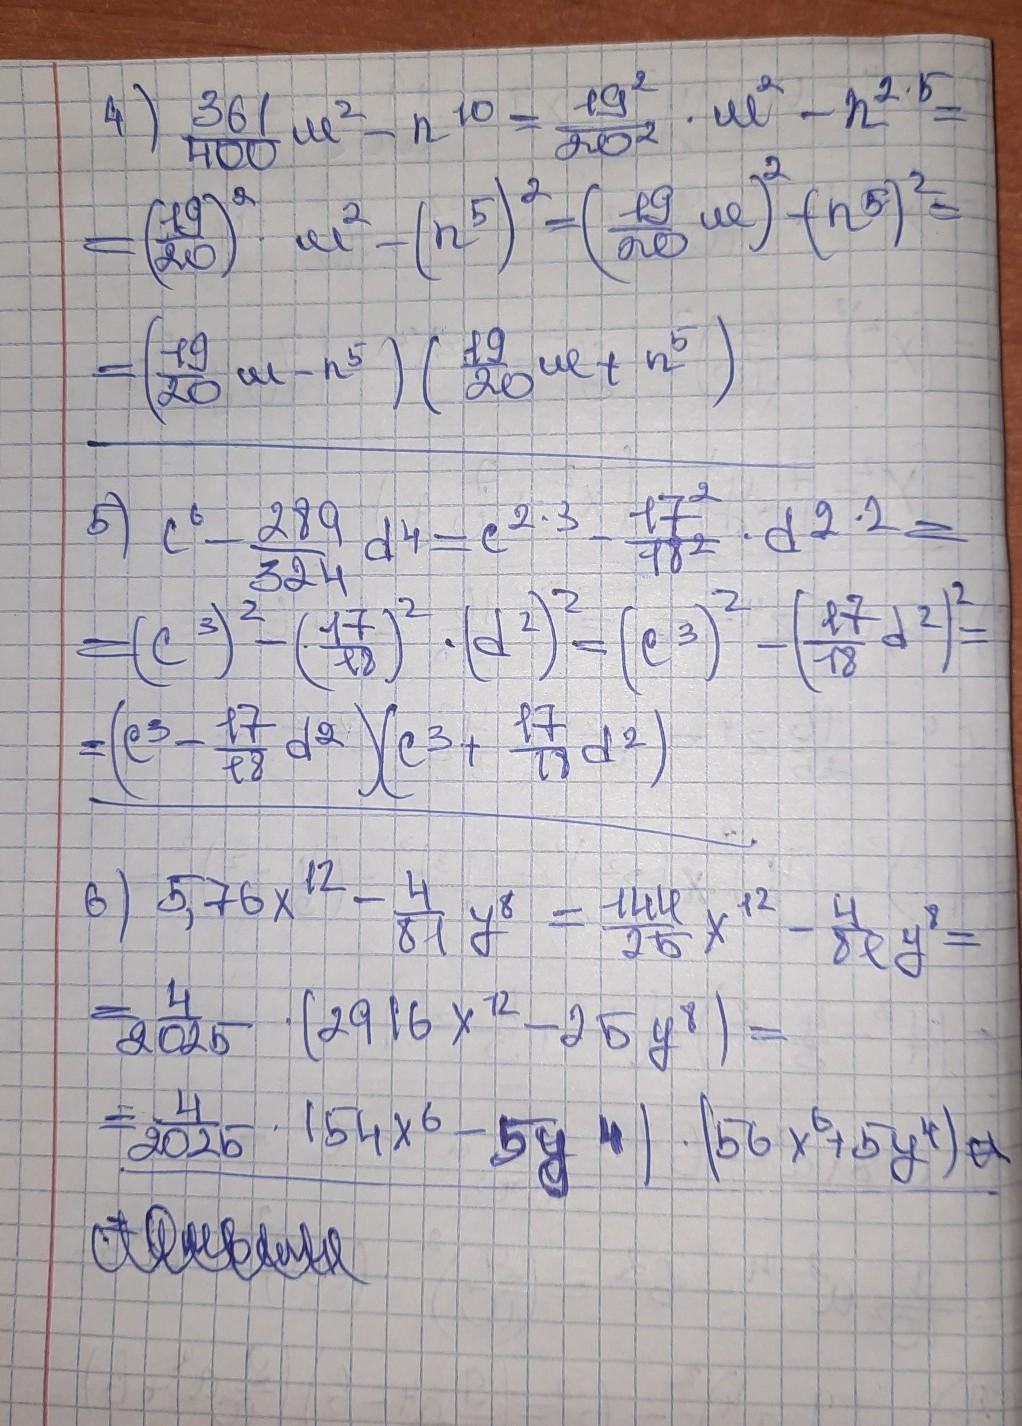 4) 361/400 m² - n¹⁰ = 19²/20² · m² - n^2·5 =
= (19/20)² · m² - (n⁵)² = (19/20 m)² - (n⁵)² =
= (19/20 m - n⁵) (19/20 m + n⁵)
5) c⁶ - 289/324 d⁴ = c^2·3 - 17²/18² · d^2·2 =
= (c³)² - (17/18)² · (d²)² = (c³)² - (17/18 d²)² =
= (c³ - 17/18 d²)(c³ + 17/18 d²)
6) 5,76x¹² - 4/81 y⁸ = 144/25 x¹² - 4/81 y⁸ =
= 4/2025 · (2916x¹² - 25y⁸) =
= 4/2025 · (54x⁶ - 5y⁴) · (56x⁶ + 5y⁴)